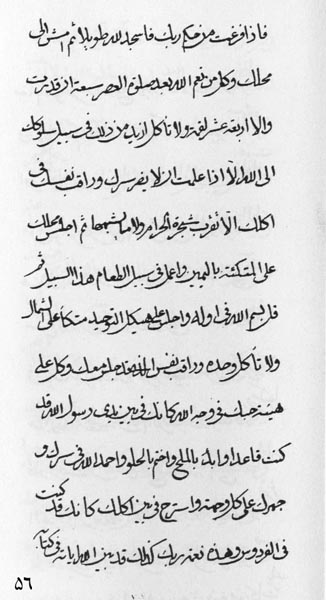 فاذا فرغت من حكم ربك فاسجد لله طويلا ثم امش الى
محلك وكل من نعم الله بعد صلوة العصر سبعة ان قدرت
والا اربعة عشر لقمة ولا تاكل ازيد من ذلك في سبيل سلوكك
الى الله الا اذا علمت ان لا يضرك وراقب نفسك في
اكلك الا تقرب شجرة الحرام ولا ما يشبهها ثم اجلس
على المتكئة باليمين واعمل في سبل الطعام هذا السبيل ثم
قل بسم الله في اوله واجلس على هيكل التوحيد متكأ على الشمال
ولا تأكل وحده وراقب نفس الذي جلس معك وكل على
هيئة حبك في وجه الله كانك في بين يدي رسول الله قد
كنت قاعدا وابدء بالملح واختم بالحلو واحمد الله في سرك و
جهرك على كل رحمته واسترح في بين اكلك كانك قد كنت
في الفردوس وهذه نعمة ربك كذلك قد بين الله اياته في كتابه
٥٦